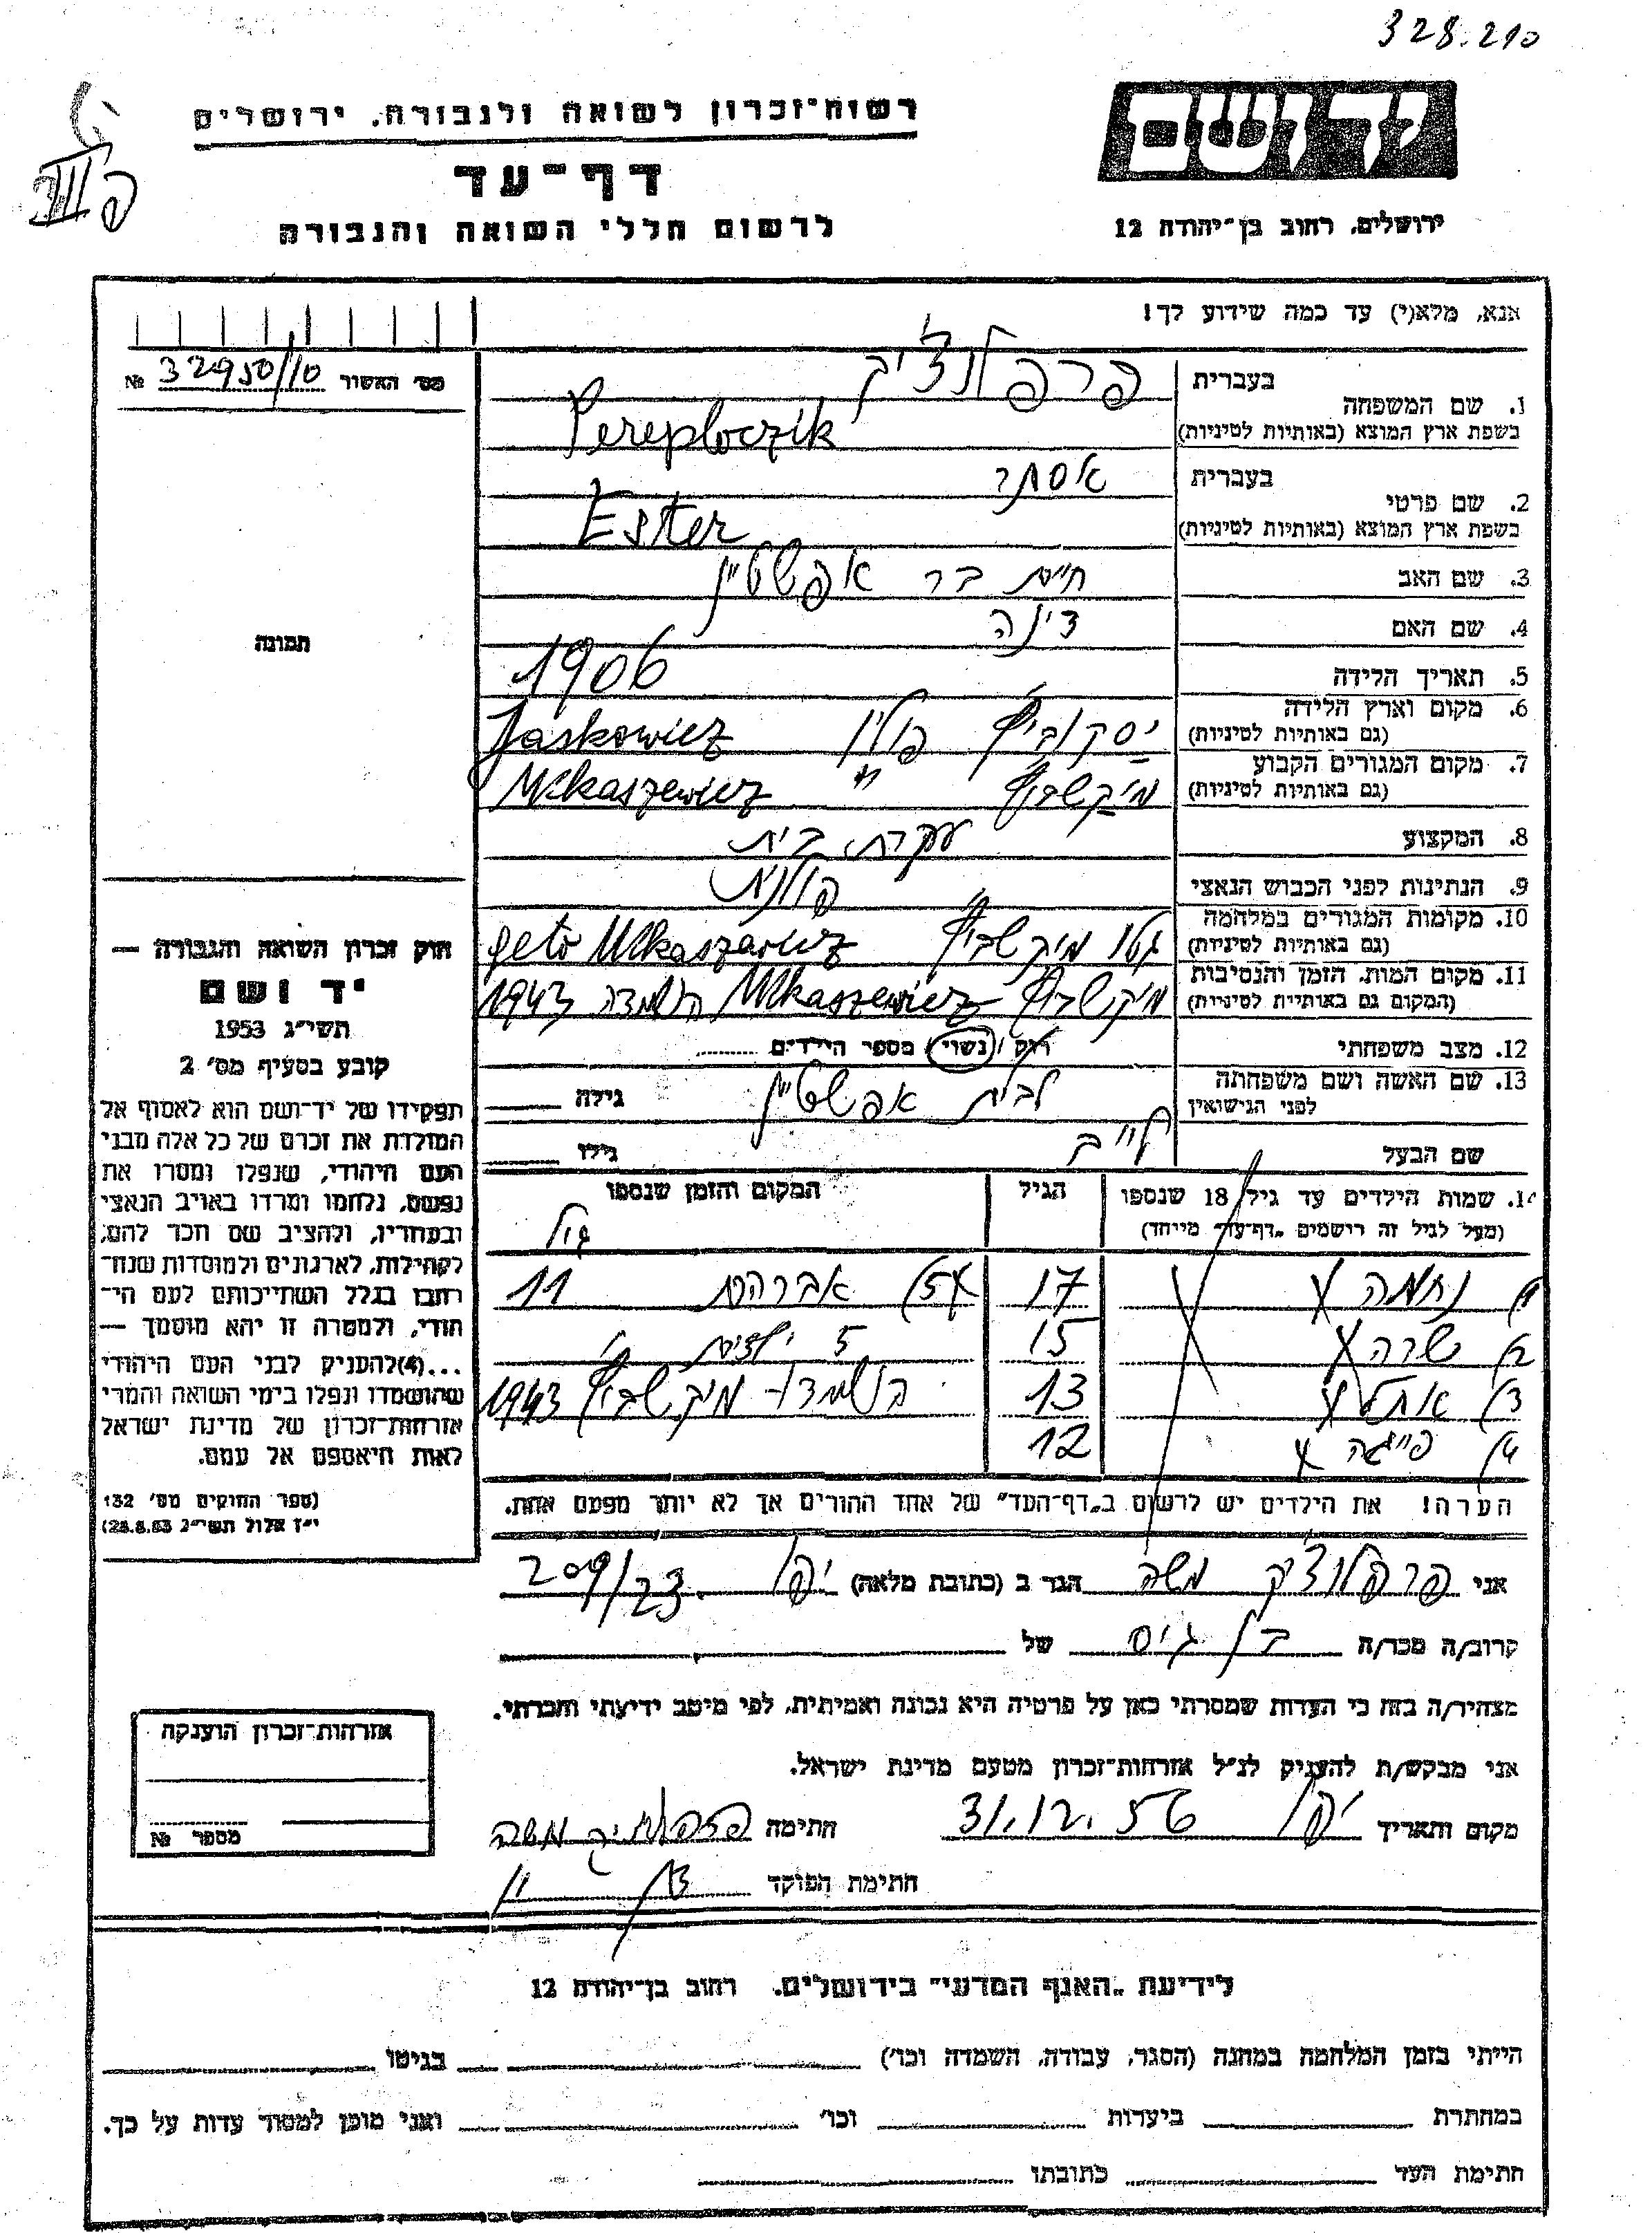 328.210
יד ושם
ירושלים, רחוב בן־יהודה 12
רשות־זכרון לשואה ולגבורה, ירושלים
דף־עד
לרשום חללי השואה והגבורה
אנא, מלא(י) עד כמה שידוע לך!
מס׳ האשור 32950/10 №
תמונה
1. שם המשפחה
בעברית פרפלוצ׳יק
בשפת ארץ המוצא (באותיות לטיניות) Pereploczik
2. שם פרטי
בעברית אסתר
בשפת ארץ המוצא (באותיות לטיניות) Ester
3. שם האב חיים בר אפשטיין
4. שם האם דינה
5. תאריך הלידה 1906
6. מקום וארץ הלידה יסקוביץ פולין Jaskowicz
(גם באותיות לטיניות)
7. מקום המגורים הקבוע מיקשביץ " Mikaszewicz
(גם באותיות לטיניות)
8. המקצוע עקרת בית
9. הנתינות לפני הכבוש הנאצי פולנית
10. מקומות המגורים במלחמה גטו מיקשביץ geto Mikaszewicz
(גם באותיות לטיניות)
11. מקום המות, הזמן והנסיבות מיקשביץ Mikaszewicz השמדה 1943
(המקום גם באותיות לטיניות)
12. מצב משפחתי רוק / נשוי / מספר הילדים
13. שם האשה ושם משפחתה לבית אפשטיין גילה
לפני הנישואין
שם הבעל לייב גילו
14. שמות הילדים עד גיל 18 שנספו הגיל המקום והזמן שנספו
(מעל לגיל זה רושמים „דף־עד״ מייחד) גיל
1) נחמה 17 5) אברהם 11
2) שרה 15 5 ילדים
3) 13 השמדה מיקשביץ 1943
4) פייגה 12
הערה! את הילדים יש לרשום ב„דף־העד״ של אחד ההורים אך לא יותר מפעם אחת.
חוק זכרון השואה והגבורה —
יד ושם
תשי״ג 1953
קובע בסעיף מס׳ 2
תפקידו של יד־ושם הוא לאסוף אל
המולדת את זכרם של כל אלה מבני
העם היהודי, שנפלו ומסרו את
נפשם, נלחמו ומרדו באויב הנאצי
ובעוזריו, ולהציב שם וזכר להם,
לקהילות, לארגונים ולמוסדות שנח־
רבו בגלל השתייכותם לעם הי־
הודי, ולמטרה זו יהא מוסמך —
...(4) להעניק לבני העם היהודי
שהושמדו ונפלו בימי השואה והמרי
אזרחות־זכרון של מדינת ישראל
לאות היאספם אל עמם.
(ספר החוקים מס׳ 132
י״ז אלול תשי״ג 28.8.53)
אני פרפלוצ׳יק משה הגר ב (כתובת מלאה) יפו 209/23
קרוב/ה מכר/ה בן גיס של
מצהיר/ה בזה כי העדות שמסרתי כאן על פרטיה היא נכונה ואמיתית, לפי מיטב ידיעתי והכרתי.
אני מבקש/ת להעניק לנ״ל אזרחות־זכרון מטעם מדינת ישראל.
מקום ותאריך יפו 31.12.56 חתימה פרפלוצ׳יק משה
חתימת הפוקד
אזרחות־זכרון הוענקה
מספר №
לידיעת „האגף המדעי״ בירושלים, רחוב בן־יהודה 12
הייתי בזמן המלחמה במחנה (הסגר, עבודה, השמדה וכו׳) בגיטו
במחתרת ביערות וכו׳ ואני מוכן למסור עדות על כך.
חתימת העד כתובתו